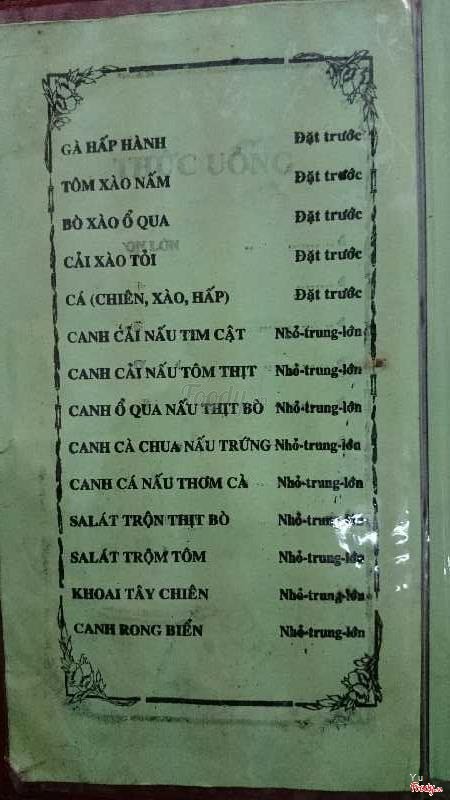 GÀ HẤP HÀNH Đặt trước
TÔM XÀO NẤM Đặt trước
BÒ XÀO Ổ QUA Đặt trước
CẢI XÀO TỎI Đặt trước
CÁ (CHIÊN, XÀO, HẤP) Đặt trước
CANH CẢI NẤU TIM CẬT Nhỏ-trung-lớn
CANH CẢI NẤU TÔM THỊT Nhỏ-trung-lớn
CANH Ổ QUA NẤU THỊT BÒ Nhỏ-trung-lớn
CANH CÀ CHUA NẤU TRỨNG Nhỏ-trung-lớn
CANH CÁ NẤU THƠM CÀ Nhỏ-trung-lớn
SALÁT TRỘN THỊT BÒ Nhỏ-trung-lớn
SALÁT TRỘM TÔM Nhỏ-trung-lớn
KHOAI TÂY CHIÊN Nhỏ-trung-lớn
CANH RONG BIỂN Nhỏ-trung-lớn
THỨC UỐNG
Foody
Yu
Foody.vn